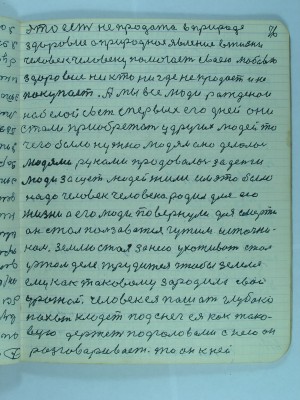 это есть не продажа в природе 96
здоровие а природная явление в жизни
человек человеку помогает своею любовью
здоровие никто нигде не придает и не
покупает. А мы все люди рожденои
на белой свет с первых его дней они
стали приобретать у других людей то
чего было нужно людям оно делалось
людями руками продовалось за деньги
люди за щет людей жили им это было
надо человек человека родил для его
жизни а его люди повернули для смерти
он стал ползоватся чужим источни-
ком. Землю стал за нею ухоживать стал
у этом деле трудится чтобы земля
ему как таковому зародила свой
урожай. Человек ея пашит глубоко
пахыт кладет под снег ея как тако-
вую держит под головами с нею он
разговаривает. то он к ней